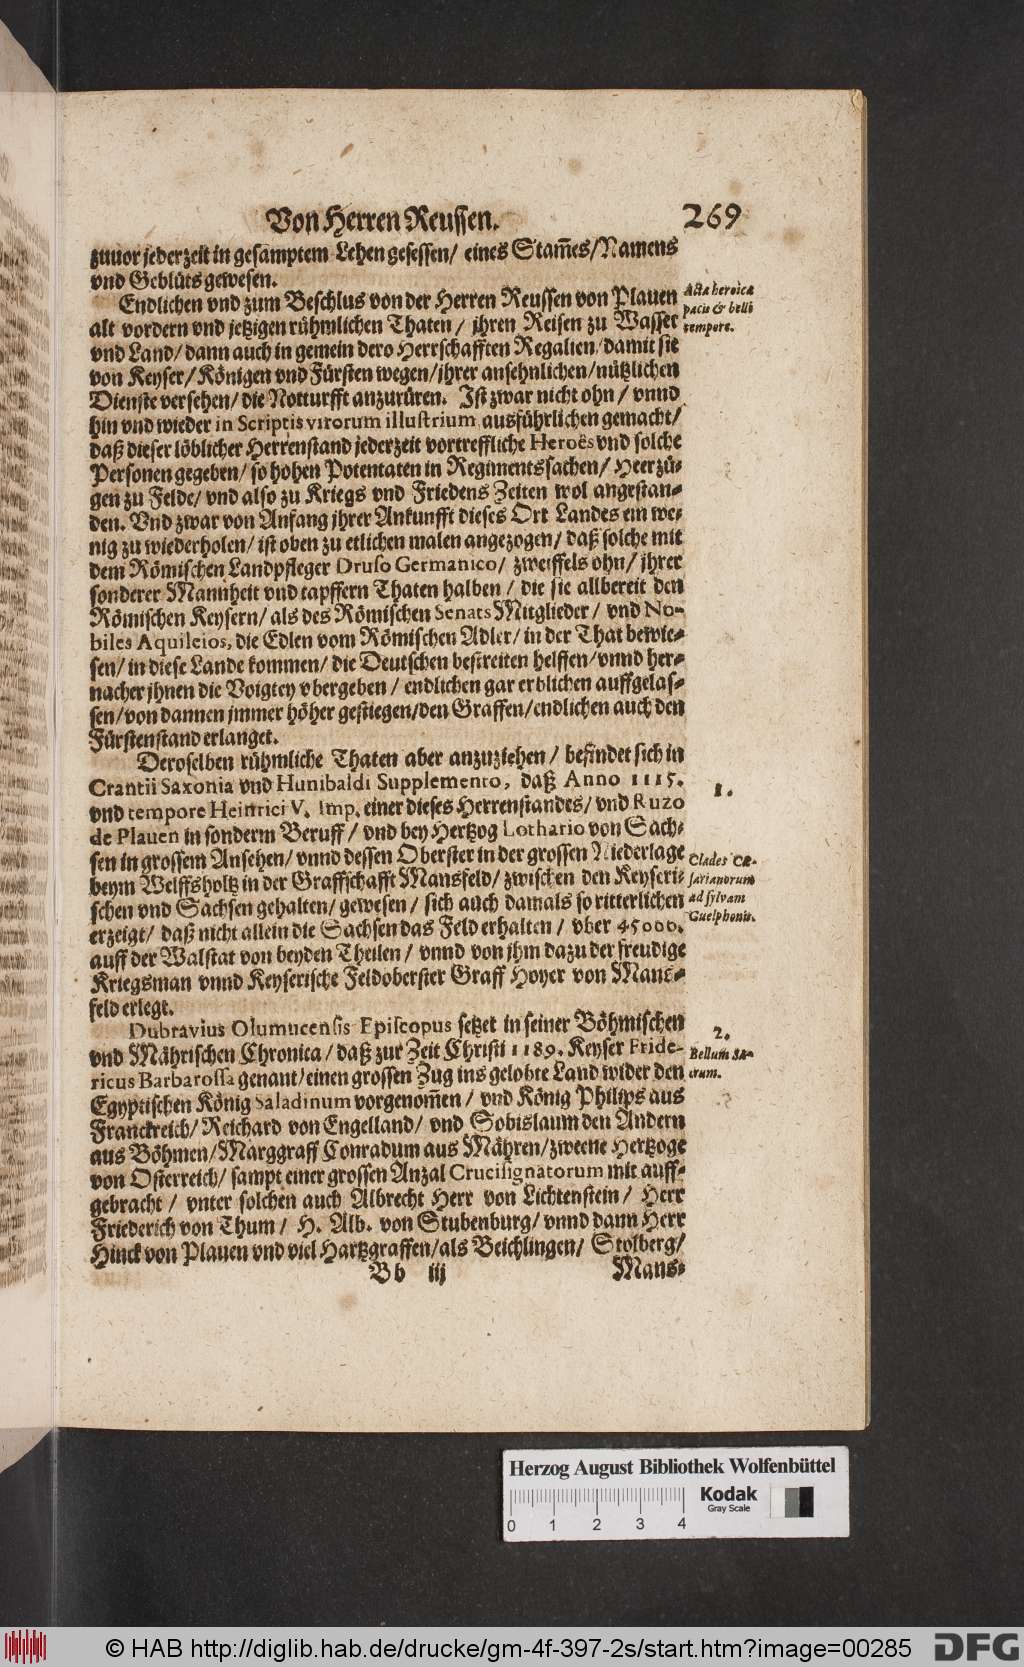 Von Herren Reussen. 269
zuuor jederzeit in gesamptem Lehen gesessen/ eines Stam̃es/Namens
vnd Geblüts gewesen.
Endlichen vnd zum Beschlus von der Herren Reussen von Plauen
alt vordern vnd jetzigen rühmlichen Thaten/ jhren Reisen zu Wasser
vnd Land/ dann auch in gemein dero Herrschafften Regalien/ damit sie
von Keyser/ Königen vnd Fürsten wegen/ jhrer ansehnlichen/ nützlichen
Dienste versehen/ die Notturfft anzurüren. Ist zwar nicht ohn/ vnnd
hin vnd wieder in Scriptis virorum illustrium ausführlichen gemacht/
daß dieser löblicher Herrenstand jederzeit vortreffliche Heroës vnd solche
Personen gegeben/ so hohen Potentaten in Regimentssachen/ Heerzü-
gen zu Felde/ vnd also zu Kriegs vnd Friedens Zeiten wol angestan-
den. Vnd zwar von Anfang jhrer Ankunfft dieses Ort Landes ein we-
nig zu wiederholen/ ist oben zu etlichen malen angezogen/ daß solche mit
dem Römischen Landpfleger Druso Germanico/ zweiffels ohn/ jhrer
sonderer Mannheit vnd tapffern Thaten halben/ die sie allbereit den
Römischen Keysern/ als des Römischen Senats Mitglieder/ vnd No-
biles Aquileios, die Edlen vom Römischen Adler/ in der That bewie-
sen/ in diese Lande kommen/ die Deutschen bestreiten helffen/ vnnd her-
nacher jhnen die Voigtey vbergeben/ endlichen gar erblichen auffgelas-
sen/ von dannen jmmer höher gestiegen/ den Graffen/ endlichen auch den
Fürstenstand erlanget.
Deroselben rühmliche Thaten aber anzuziehen/ befindet sich in
Crantii Saxonia vnd Hunibaldi Supplemento, daß Anno 1115.
vnd tempore Heinrici V. Imp. einer dieses Herrenstandes/ vnd Ruzo
de Plauen in sonderm Beruff/ vnd bey Hertzog Lothario von Sach-
sen in grossem Ansehen/ vnnd dessen Oberster in der grossen Niederlage
beym Welffsholtz in der Graffschafft Mansfeld/ zwischen den Keyseri-
schen vnd Sachsen gehalten/ gewesen/ sich auch damals so ritterlichen
erzeigt/ daß nicht allein die Sachsen das Feld erhalten/ vber 45000.
auff der Walstat von beyden Theilen/ vnnd von jhm dazu der freudige
Kriegsman vnnd Keyserische Feldoberster Graff Hoyer von Mans-
feld erlegt.
Dubravius Olumucensis Episcopus setzet in seiner Böhmischen
vnd Mährischen Chronica/ daß zur Zeit Christi 1189. Keyser Fride-
ricus Barbarossa genant/ einen grossen Zug ins gelobte Land wider den
Egyptischen König Saladinum vorgenom̃en/ vnd König Philips aus
Franckreich/ Reichard von Engelland/ vnd Sobislaum den Andern
aus Böhmen/ Marggraff Conradum aus Mähren/ zweene Hertzoge
von Osterreich/ sampt einer grossen Anzal Crucisignatorum mit auff-
gebracht/ vnter solchen auch Albrecht Herr von Lichtenstein/ Herr
Friederich von Thum/ H. Alb. von Stubenburg/ vnnd dann Herr
Hinck von Plauen vnd viel Hartzgraffen/ als Beichlingen/ Stolberg/
Bb iij Mans-
Acta heroica
pacis & belli
tempore.
1.
Clades Cæ-
sarianorum
ad sylvam
Guelphonis.
2.
Bellum sa-
crum.
Herzog August Bibliothek Wolfenbüttel
Kodak
Gray Scale
0 1 2 3 4
© HAB http://diglib.hab.de/drucke/gm-4f-397-2s/start.htm?image=00285
DFG